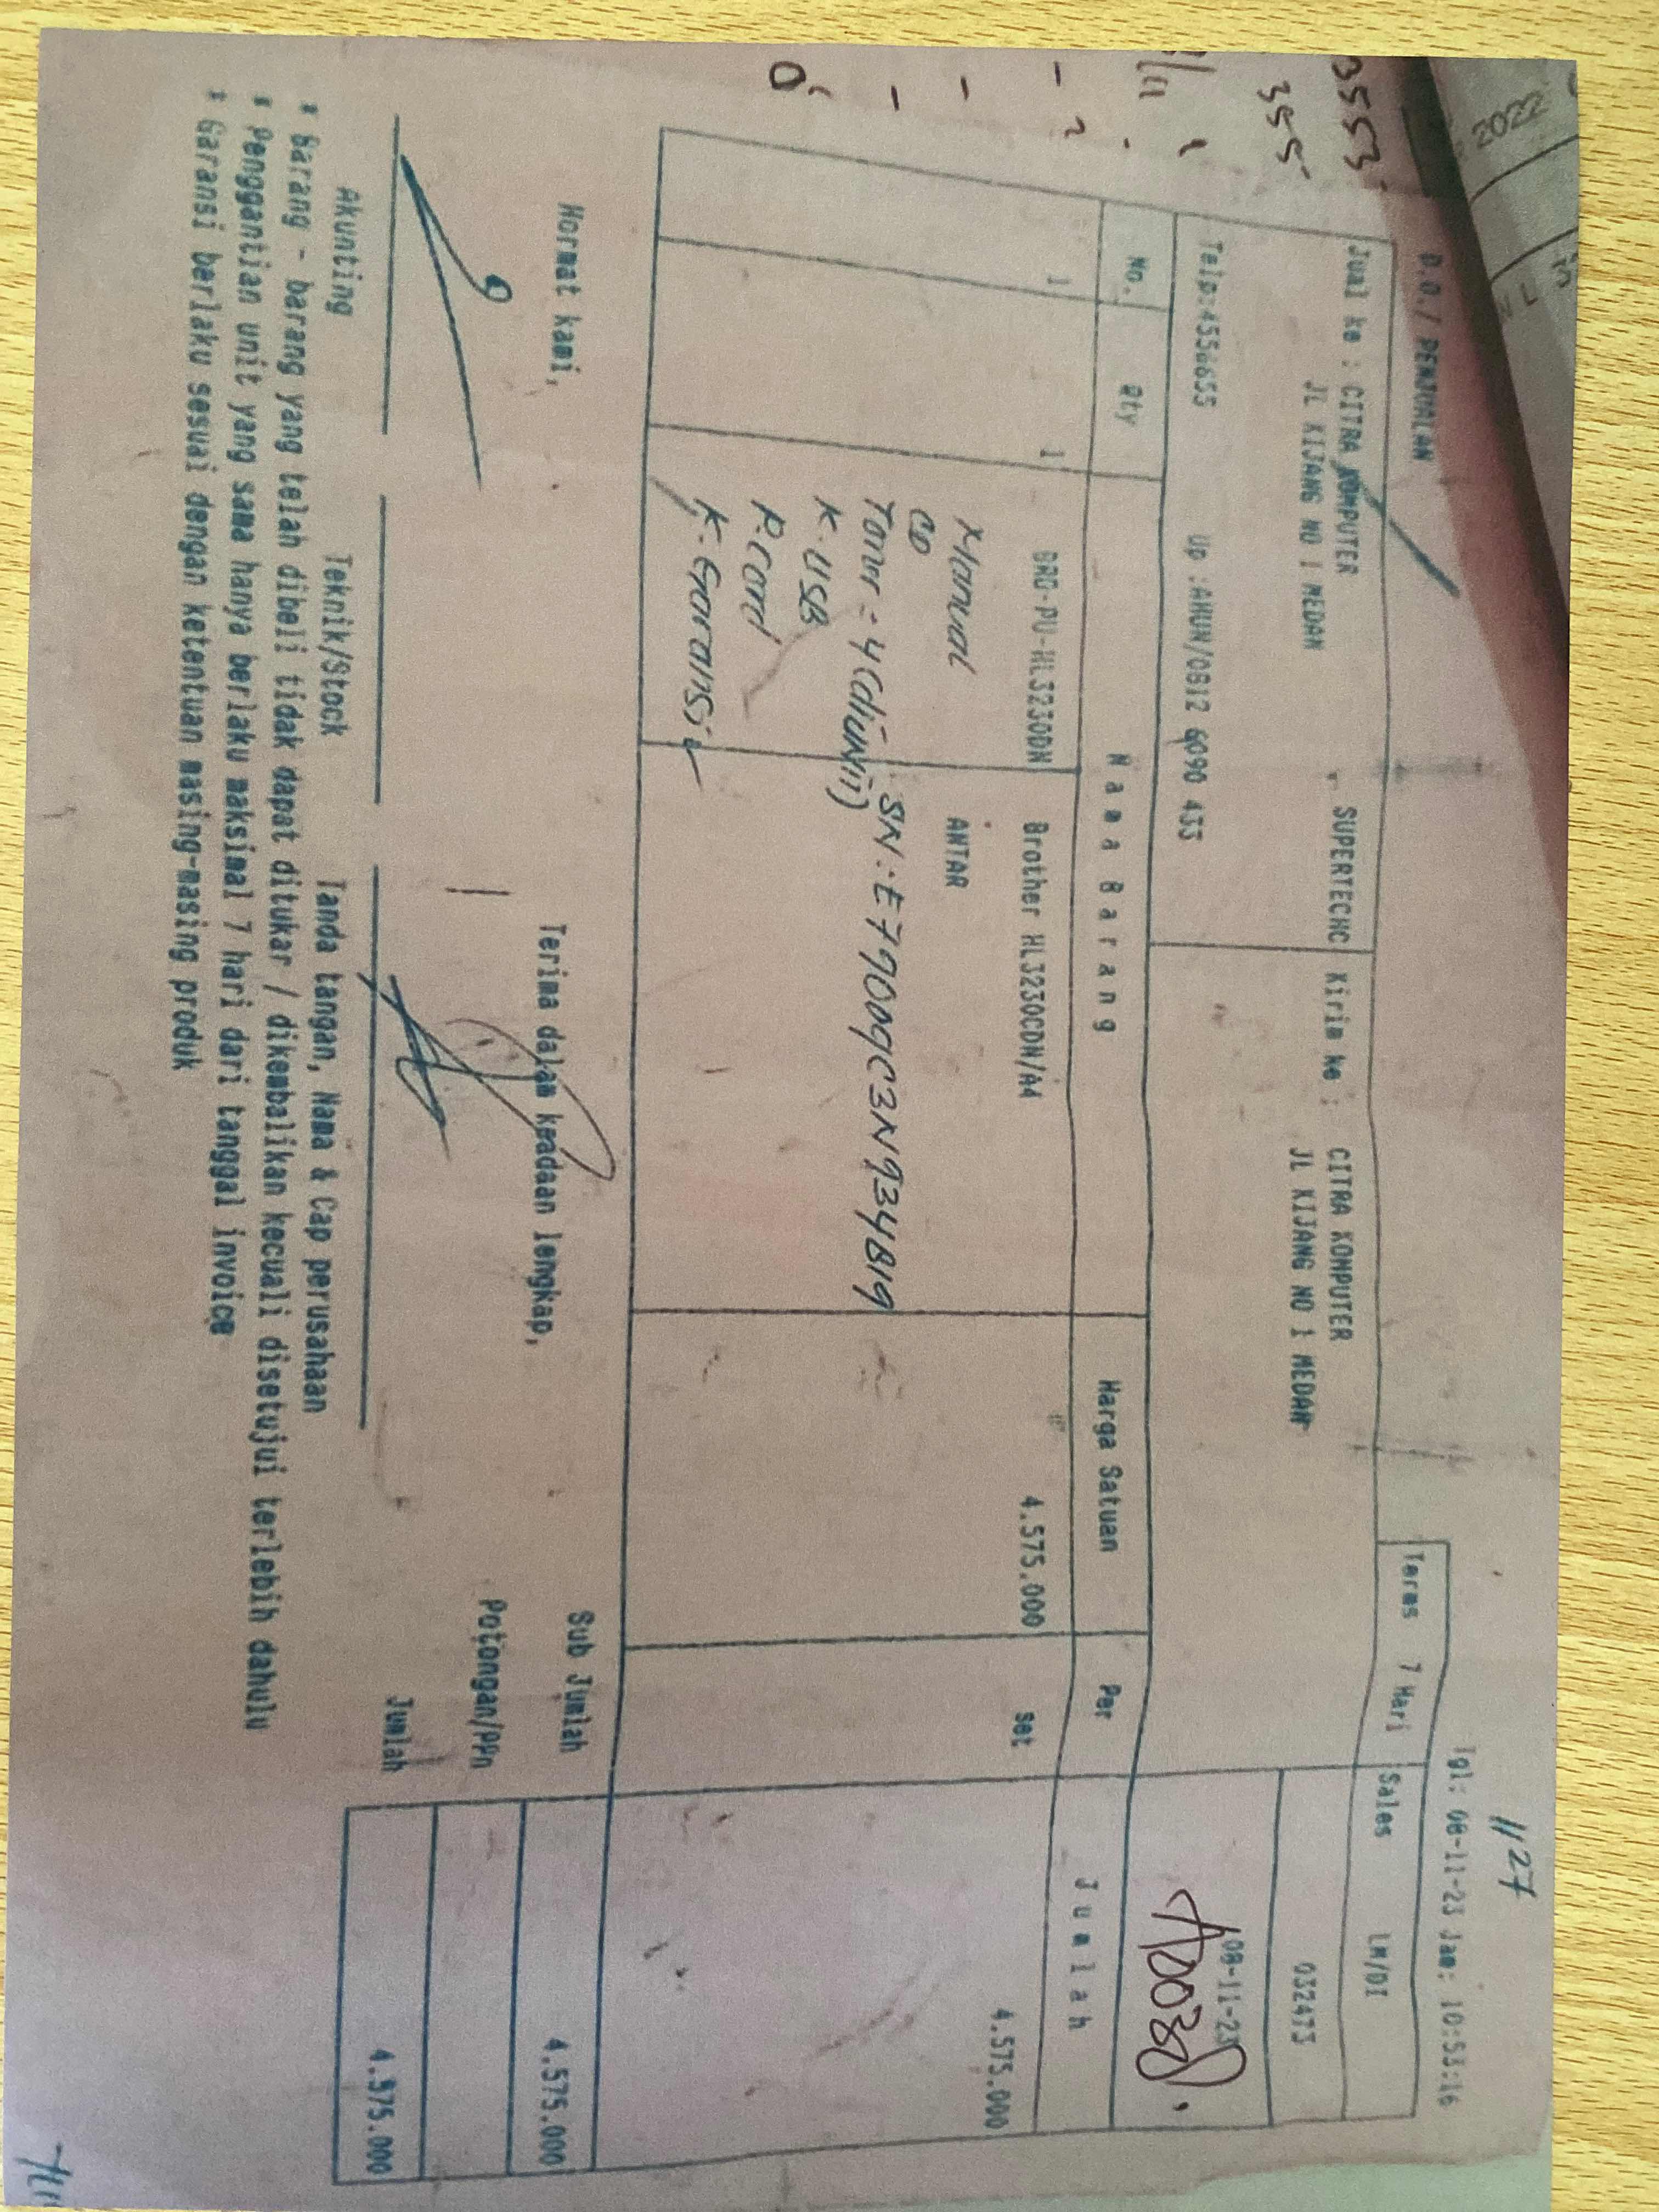 2022
1127
Tgl: 08-11-23 Jam: 10:53:16
D.O./ PENJUALAN
Terms 7 Hari Sales LM/DI
Jual ke : CITRA KOMPUTER SUPERTECHC Kirim ke : CITRA KOMPUTER
JL KIJANG NO 1 MEDAN JL KIJANG NO 1 MEDAN
032473
08-11-23
Telp:4556655 Up :AHUN/0812 6090 433
No. Qty Nama Barang Harga Satuan Per Jumlah
1 1 BRO-PU-HL3230DN Brother HL3230CDN/A4 4.575.000 set 4.575.000
Manual ANTAR
CD
SN: E79009C3N934819
Toner = 4 (diUnit)
K. USB
P. Card
K. Garansi
Sub Jumlah 4.575.000
Hormat kami, Terima dalam keadaan lengkap,
Potongan/PPn
Jumlah 4.575.000
Akunting Teknik/Stock Tanda tangan, Nama & Cap perusahaan
* Barang - barang yang telah dibeli tidak dapat ditukar / dikembalikan kecuali disetujui terlebih dahulu
* Penggantian unit yang sama hanya berlaku maksimal 7 hari dari tanggal invoice
* Garansi berlaku sesuai dengan ketentuan masing-masing produk